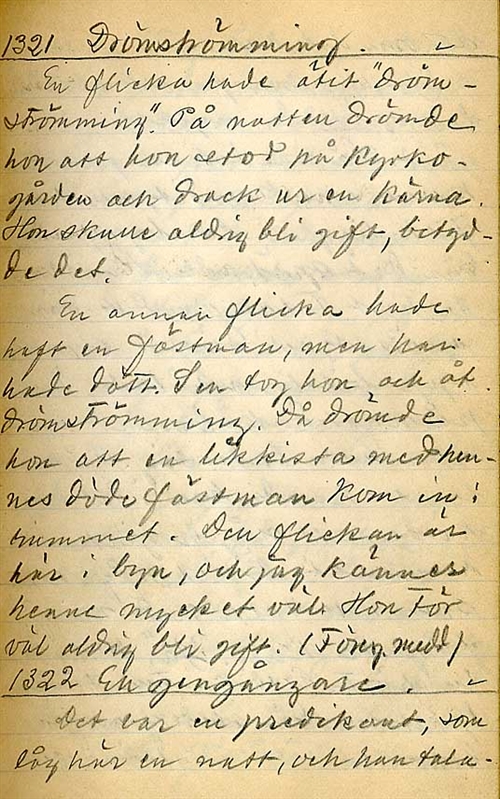 1321 Drömströmming.
En flicka hade ätit "dröm-
strömming". På natten drömde
hon att hon stod på kyrko-
gården och drack ur en kärna.
Hon skulle aldrig bli gift, betyd-
de det.
En annan flicka hade
haft en fästman, men han
hade dött. Sen tog hon och åt
drömströmming. Då drömde
hon att en likkista med hen-
nes döde fästman kom in i
rummet. Den flickan är
här i byn, och jag känner
henne mycket väl. Hon tör
väl aldrig bli gift. (Föreg. medd)
1322 En gengångare.
Det var en predikant, som
låg här en natt, och han tala-